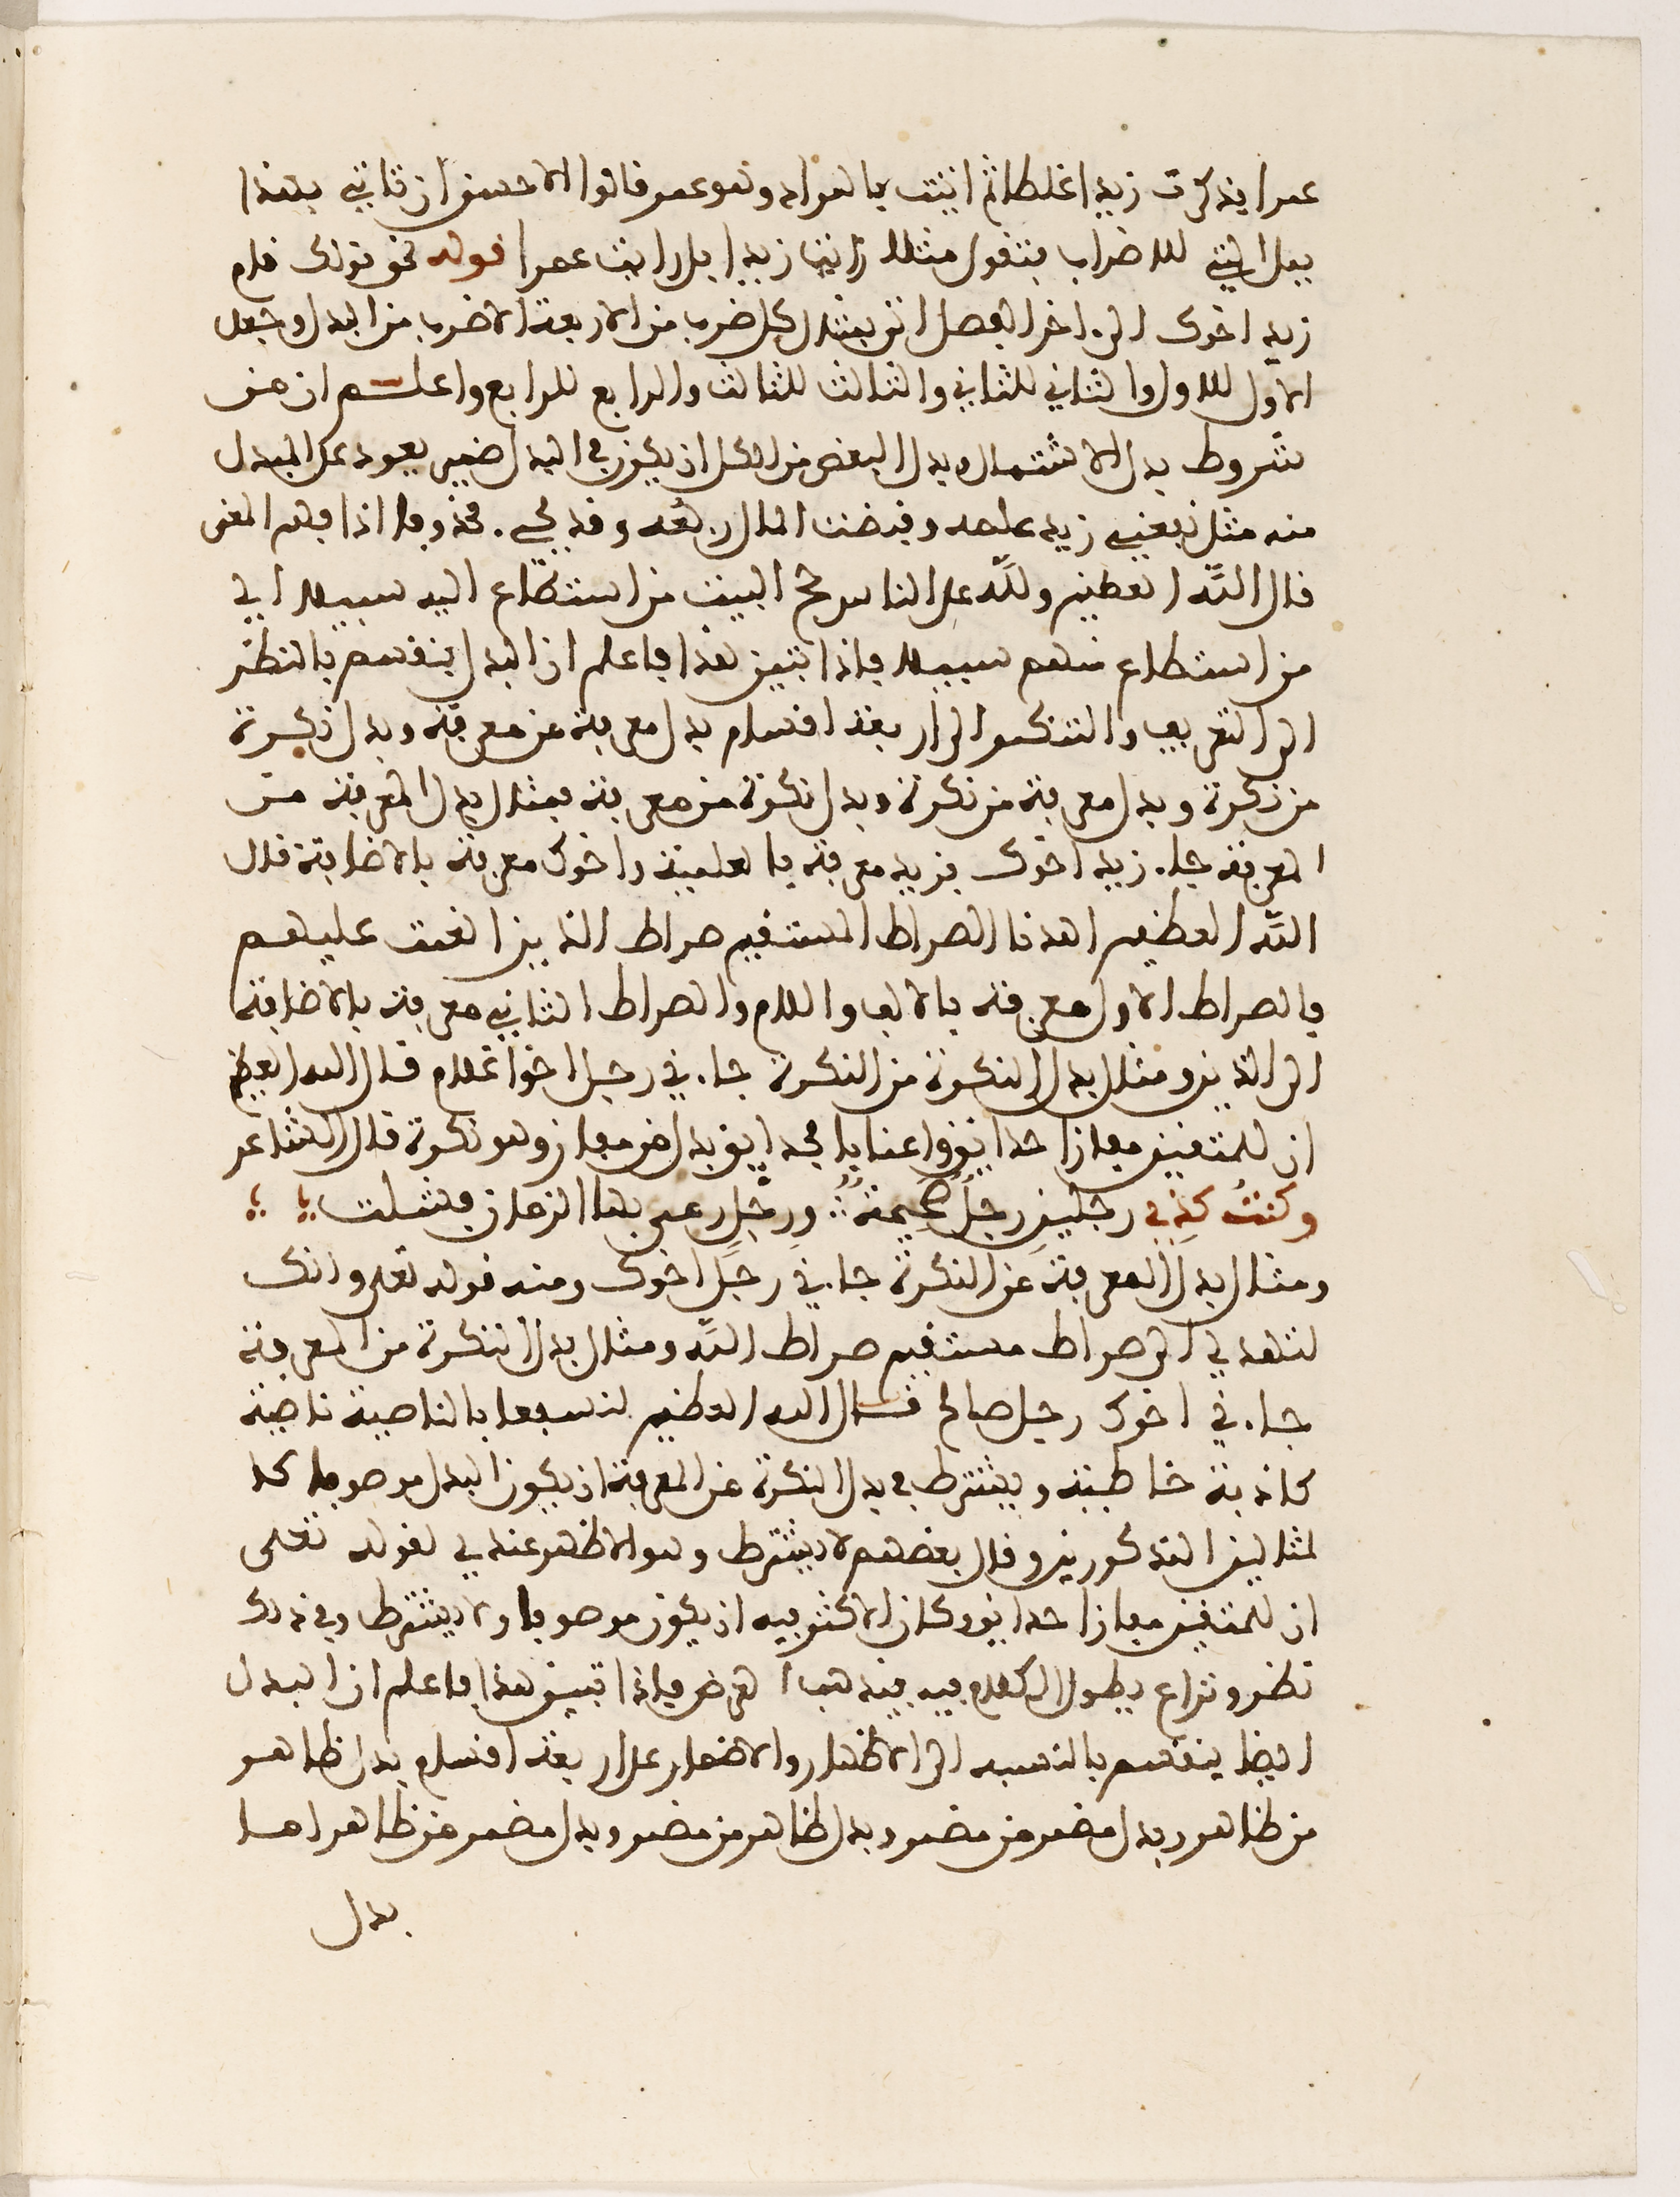 عمرا فذكرت زيدا غلطا ثم اتيت بالمراد وهو عمر قالوا الاحسن ان تاتي بهذا
ببل التي للاضراب فتقول مثلا رايت زيدا بل رايت عمرا قوله نحو قولك قام
زيد اخوك الى اخر الفصل اتى بمثال كل ضرب من الاربعة الاضرب من البدل وجعل
الاول للاول والثاني للثاني والثالث للثالث والرابع للرابع واعلم ان من
شروط بدل الاشتمال وبدل البعض من الكل ان يكون في البدل ضمير يعود على المبدل
منه مثل نفعني زيد علمه وقبضت المال ربعه وقد يجيء محذوفا اذا فهم المعنى
قال الله العظيم ولله على الناس حج البيت من استطاع اليه سبيلا اي
من استطاع منهم سبيلا فاذا تبين هذا فاعلم ان البدل ينقسم بالنظر
الى التعريف والتنكير الى اربعة اقسام بدل معرفة من معرفة وبدل نكرة
من نكرة وبدل معرفة من نكرة وبدل نكرة من معرفة فمثال بدل المعرفة من
المعرفة جاء زيد اخوك فزيد معرفة بالعلمية واخوك معرفة بالاضافة قال
الله العظيم اهدنا الصراط المستقيم صراط الذين انعمت عليهم
فالصراط الاول معرفة بالالف واللام والصراط الثاني معرفة بالاضافة
الى الذين ومثال بدل النكرة من النكرة جاءني رجل اخوا غلام قال الله العظيم
ان للمتقين مفازا حدايق واعنابا فحدايق بدل من مفاز وهو نكرة قال الشاعر
وكنت كذي رجلين رجل صحيحة ورجل رمى بها الزمان فشلت
ومثال بدل المعرفة من النكرة جاءني رجل اخوك ومنه قوله تعلى وانك
لتهدي الى صراط مستقيم صراط الله ومثال بدل النكرة من المعرفة
جاءني اخوك رجل صالح قال الله العظيم لنسفعا بالناصية ناصية
كاذبة خاطية ويشترط في بدل النكرة من المعرفة ان يكون البدل موصوفا كا
لمثالين المذكورين وقال بعضهم لا يشترط وهو الاظهر عندي لقوله تعلى
ان للمتقين مفازا حدايق وكان الاكثر فيه ان يكون موصوفا ولا يشترط وفي ذلك
نظر ونزاع يطول الكلام فيه فيذهب الغرض فاذا تبين هذا فاعلم ان البدل
ايضا ينقسم بالنسبة الى الاظهار والاضمار على اربعة اقسام بدل ظاهر
من ظاهر وبدل مضمر من مضمر وبدل ظاهر من مضمر وبدل مضمر من ظاهر اما
بدل